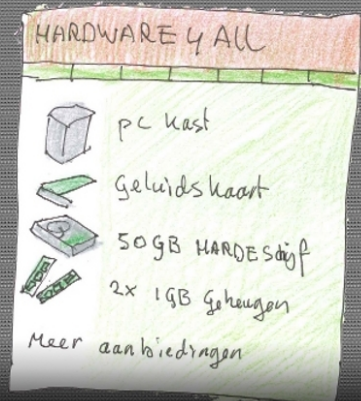 HARDWARE 4 ALL
pc kast
geluidskaart
50GB HARDESdijf
2x 1GB geheugen
Meer aanbiedingen